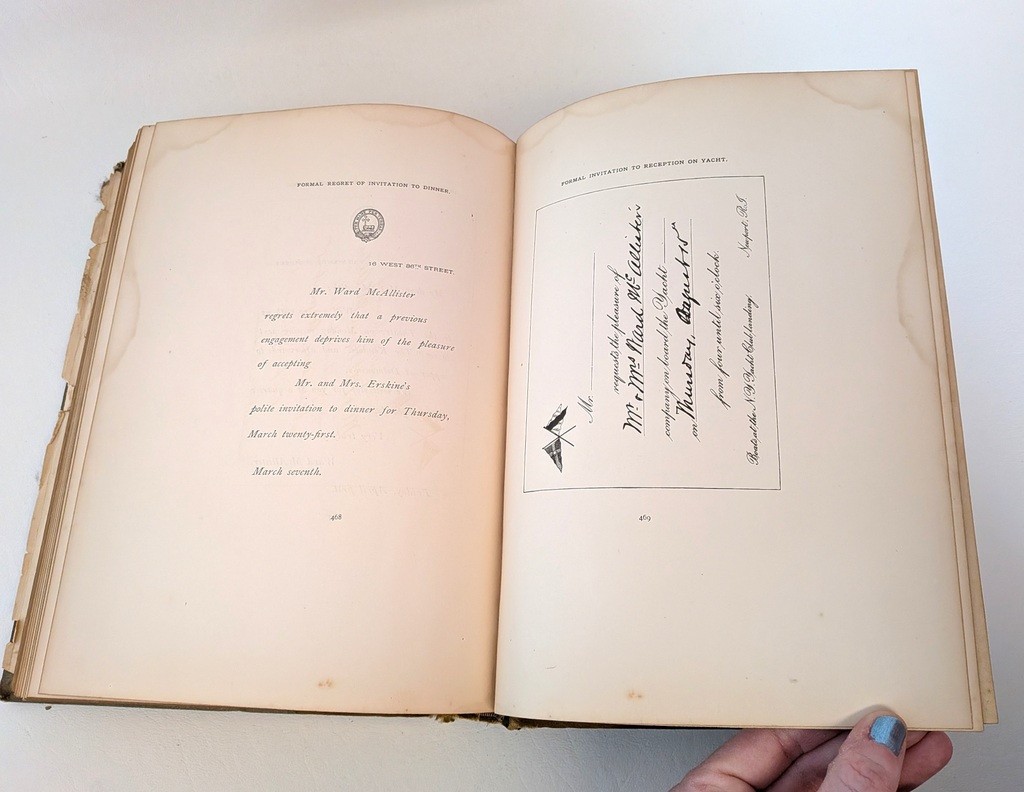 FORMAL REGRET OF INVITATION TO DINNER.
16 WEST 36TH STREET.
Mr. Ward McAllister
regrets extremely that a previous
engagement deprives him of the pleasure
of accepting
Mr. and Mrs. Erskine's
polite invitation to dinner for Thursday,
March twenty-first.
March seventh.
468
FORMAL INVITATION TO RECEPTION ON YACHT.
Mr.
requests the pleasure of
Mr & Mrs Ward McAllister's
company on board the Yacht
on Thursday, August 15th
from four, until six, o'clock.
Newport, R.I.
Boats at the N.Y. Yacht Club landing.
469